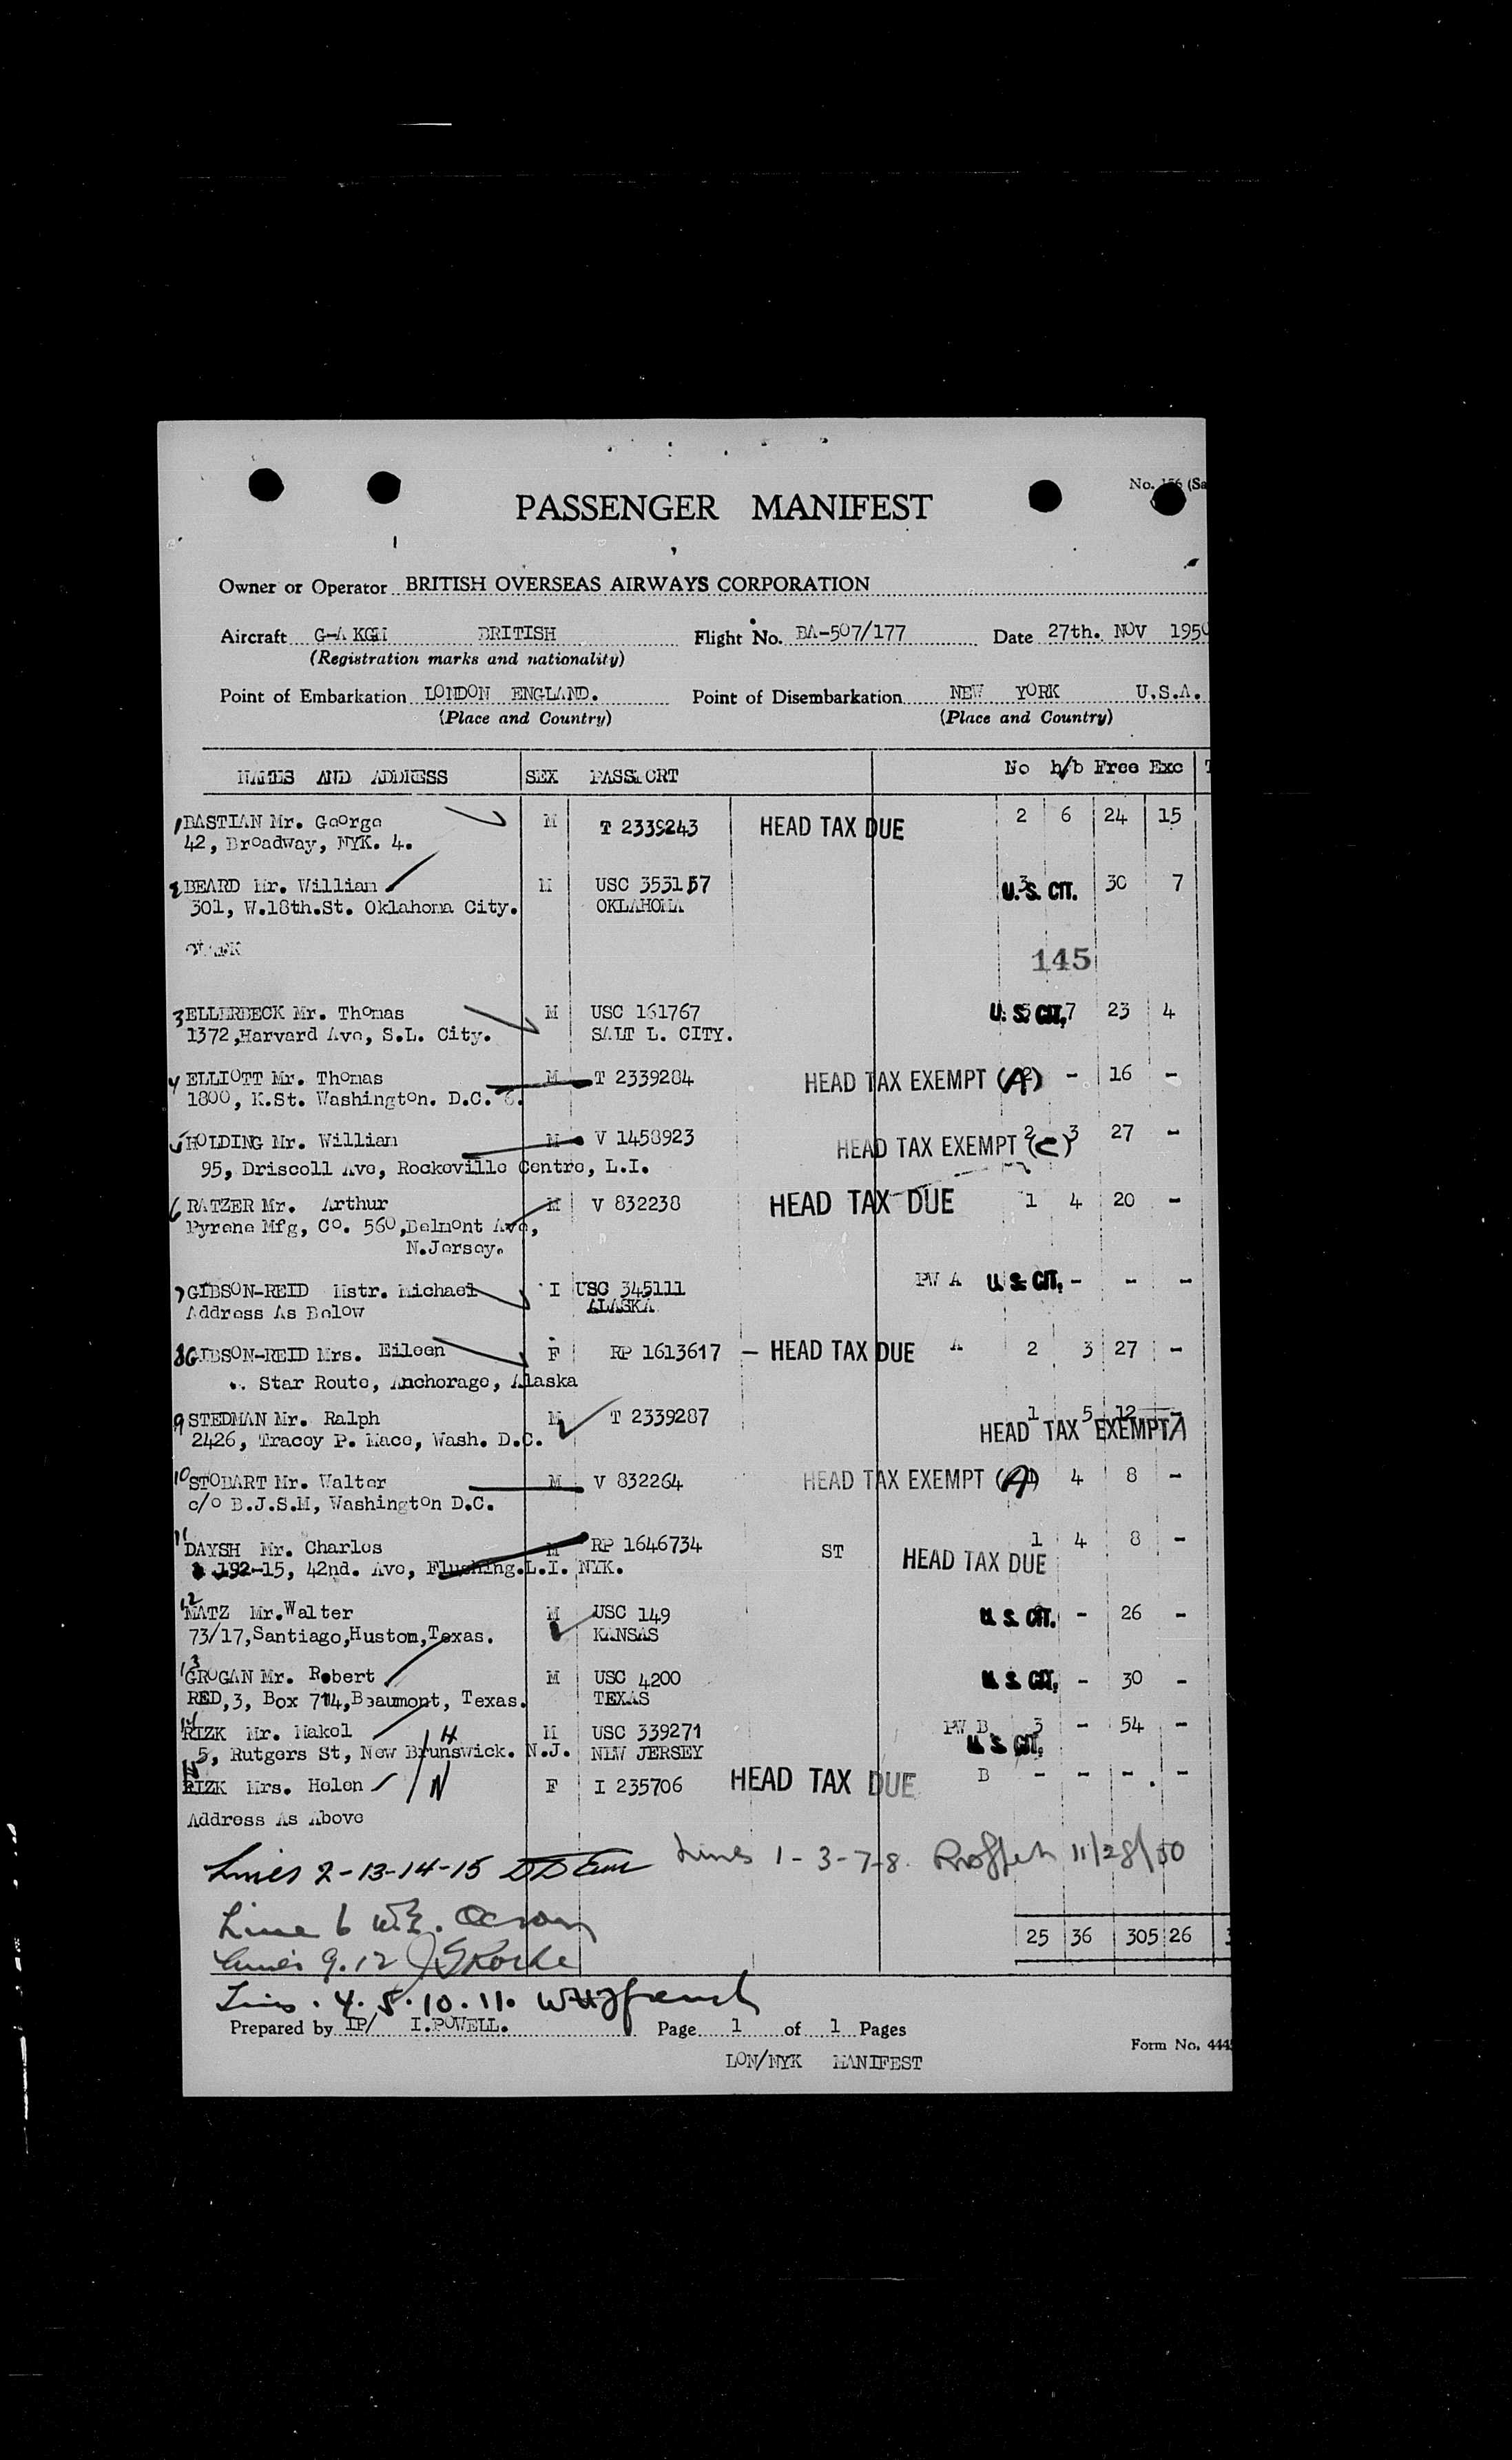 No. 156 (Sa
PASSENGER MANIFEST
Owner or Operator BRITISH OVERSEAS AIRWAYS CORPORATION
Aircraft G-A KGH BRITISH Flight No. BA-507/177 Date 27th. NOV 1950
(Registration marks and nationality)
Point of Embarkation LONDON ENGLAND. Point of Disembarkation NEW YORK U.S.A.
(Place and Country) (Place and Country)
NAMES AND ADDRESS SEX PASSPORT No h/b Free Exc T
1 BASTIAN Mr. George M T 2339243 HEAD TAX DUE 2 6 24 15
42, Broadway, NYK. 4.
2 BEARD Mr. William M USC 353157 U.S. CIT. 30 7
301, W.18th.St. Oklahoma City. OKLAHOMA
145
3 ELLERBECK Mr. Thomas M USC 161767 U.S. CIT. 7 23 4
1372,Harvard Ave, S.L. City. SALT L. CITY.
4 ELLIOTT Mr. Thomas M T 2339284 HEAD TAX EXEMPT (A) - 16 -
1800, K.St. Washington. D.C. 6.
5 HOLDING Mr. William M V 1458923 HEAD TAX EXEMPT (C) 2 3 27 -
95, Driscoll Ave, Rockeville Centre, L.I.
6 RATZER Mr. Arthur M V 832238 HEAD TAX DUE 1 4 20 -
Pyrene Mfg, Co. 560,Belmont Ave,
N.Jersey.
7 GIBSON-REID Mstr. Michael I USC 345111 PW A U.S. CIT. - - -
Address As Below ALASKA
8 GIBSON-REID Mrs. Eileen F RP 1613617 - HEAD TAX DUE A 2 3 27 -
Star Route, Anchorage, Alaska
9 STEDMAN Mr. Ralph M T 2339287 1 5 12 -
2426, Tracey P. Mace, Wash. D.C. HEAD TAX EXEMPT A
10 STOBART Mr. Walter M V 832264 HEAD TAX EXEMPT (A) 4 8 -
c/o B.J.S.M, Washington D.C.
11 DAYSH Mr. Charles M RP 1646734 ST 1 4 8 -
192-15, 42nd. Ave, Flushing.L.I. NYK. HEAD TAX DUE
12 MATZ Mr.Walter M USC 149 U.S. CIT. - 26 -
73/17,Santiago,Hustom,Texas. KANSAS
13 GROGAN Mr. Robert M USC 4200 U.S. CIT. - 30 -
RED,3, Box 714,Beaumont, Texas. TEXAS
14 RIZK Mr. Makel H M USC 339271 PW B 3 - 54 -
5, Rutgers St, New Brunswick. N.J. NEW JERSEY U.S. CIT.
RIZK Mrs. Helen F I 235706 HEAD TAX DUE B - - - -
Address As Above
Lines 2-13-14-15
Lines 1-3-7-8. 11/28/50
Line 6 W.E.
25 36 305 26
Lines 9.12
Lines. 4.5.10.11.
Prepared by IP/ I.POWELL. Page 1 of 1 Pages
Form No. 444
LON/NYK MANIFEST